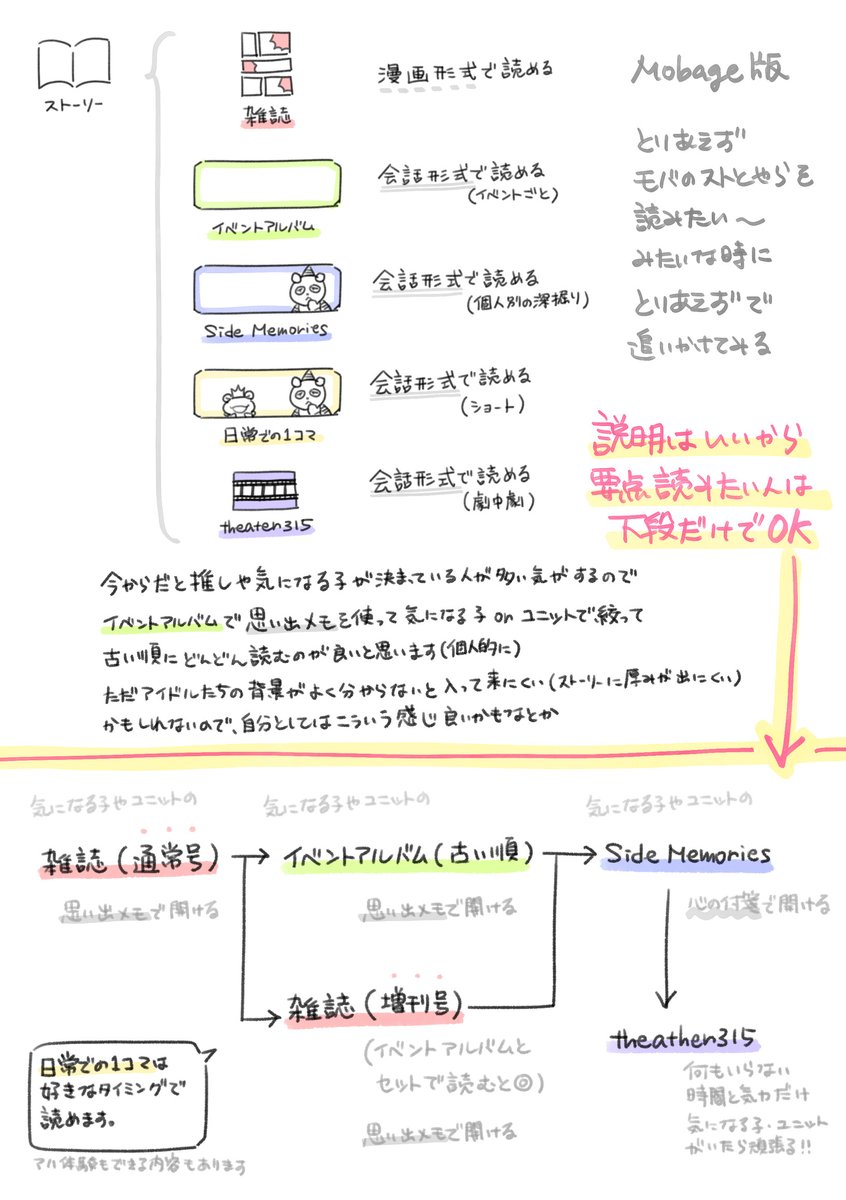 ストーリー
雑誌
漫画形式で読める
イベントアルバム
会話形式で読める
(イベントごと)
Side Memories
会話形式で読める
(個人別の深掘り)
日常での1コマ
会話形式で読める
(ショート)
theater315
会話形式で読める
(劇中劇)
Mobage版
とりあえず
モバのストとやらを
読みたい〜
みたいな時に
とりあえずで
追いかけてみる
説明はいいから
要点読みたい人は
下段だけでOK
今からだと推しや気になる子が決まっている人が多い気がするので
イベントアルバムで思い出メモを使って気になる子orユニットで絞って
古い順にどんどん読むのが良いと思います(個人的に)
ただアイドルたちの背景がよく分からないと入って来にくい(ストーリーに厚みが出にくい)
かもしれないので、自分としてはこういう感じ良いかもなとか
気になる子やユニットの
雑誌(通常号)
思い出メモで開ける
気になる子やユニットの
イベントアルバム(古い順)
思い出メモで開ける
気になる子やユニットの
Side Memories
心の付箋で開ける
雑誌(増刊号)
(イベントアルバムと
セットで読むと◎)
思い出メモで開ける
theather315
何もいらない
時間と気力だけ
気になる子・ユニット
がいたら頑張る!!
日常での1コマは
好きなタイミングで
読めます。
アハ体験もできる内容もあります